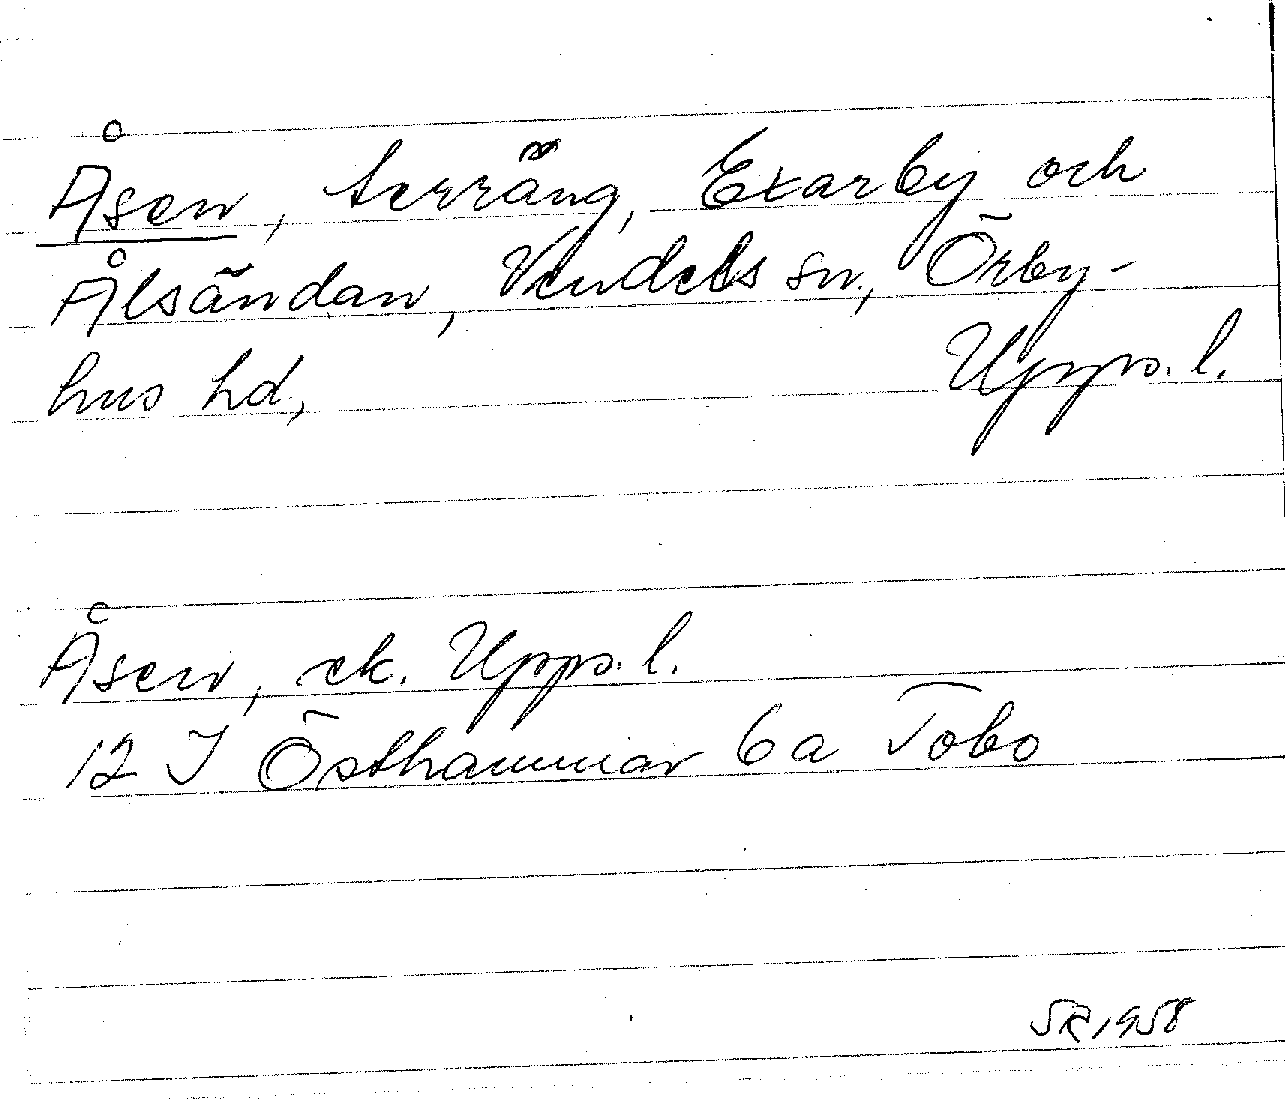 Åsen, terräng, Exarby och
Ålsändan, Vendels sn., Örby-
hus hd, Upps. l.
Åsen, ek. Upps. l.
12 I Östhammar 6a Tobo
SR 1958